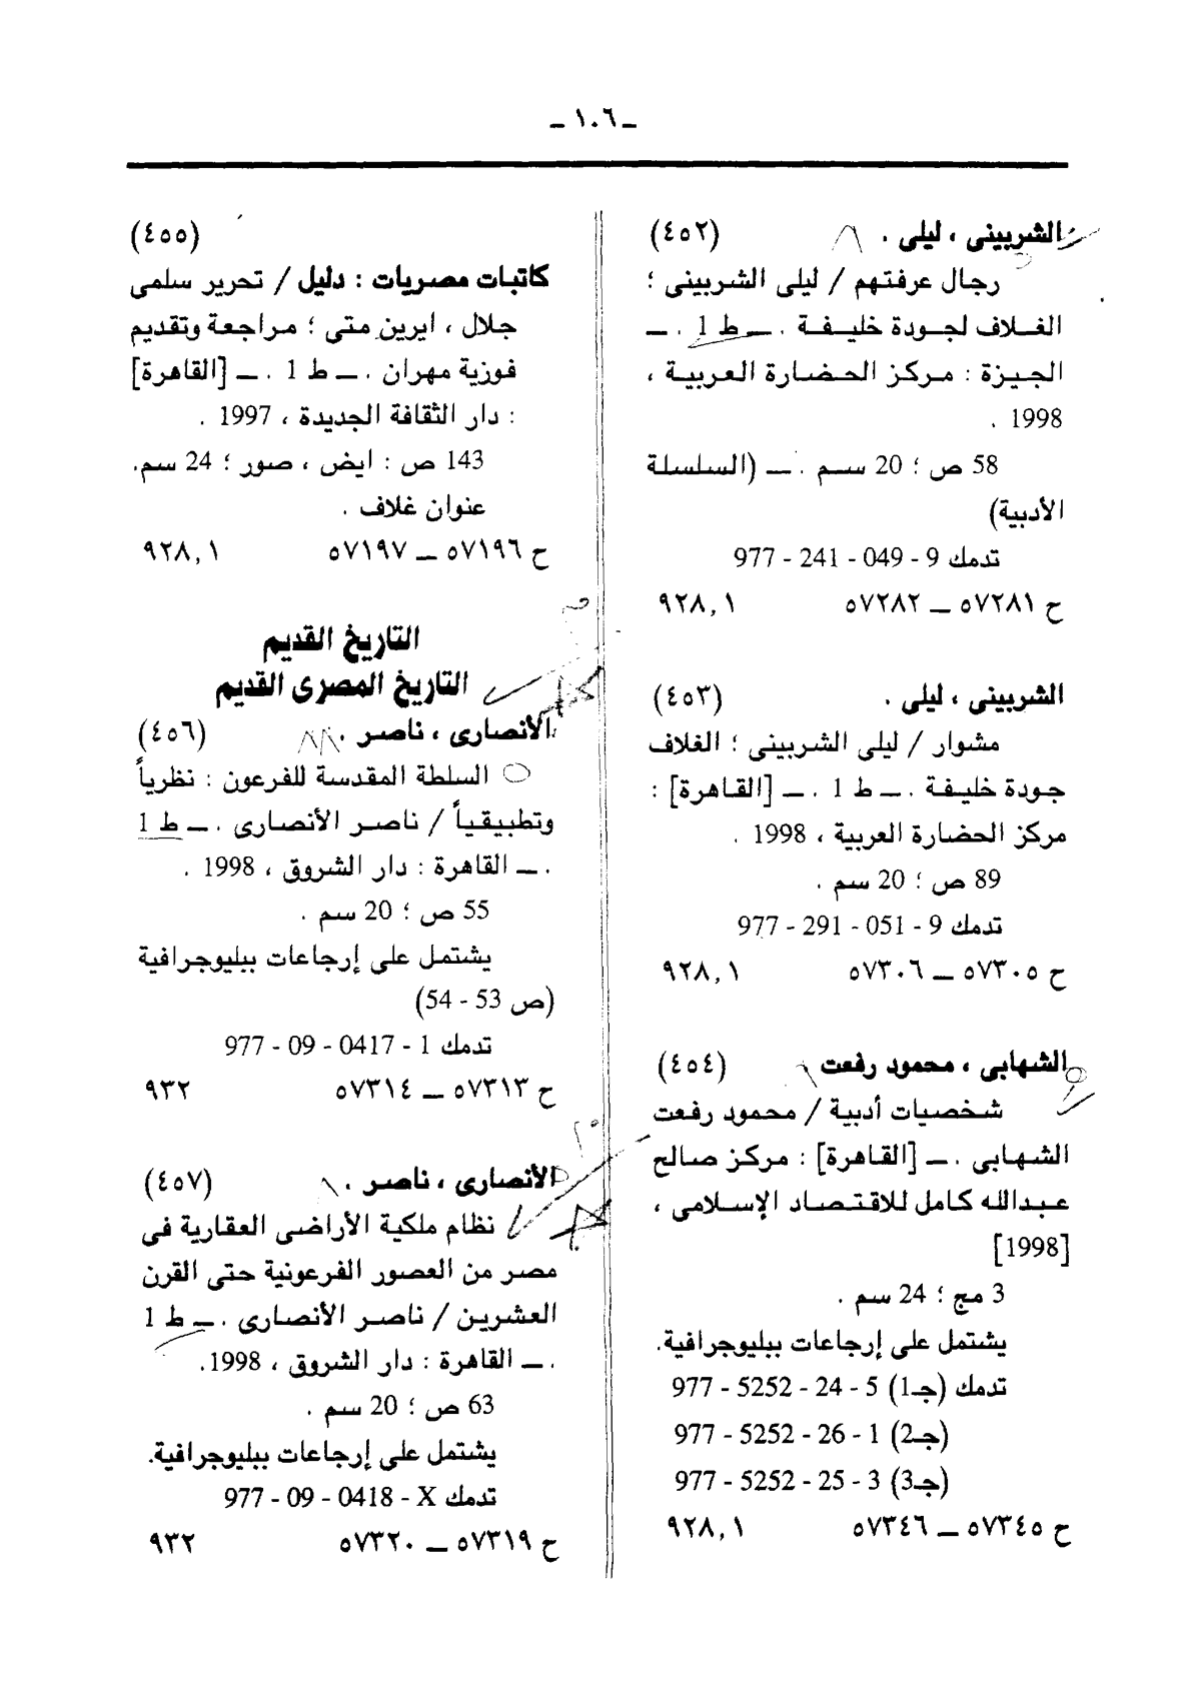 ـ ١٠٦ ـ
الشربينى ، ليلى . (٤٥٢)
رجال عرفتهم / ليلى الشربينى ؛
الغلاف لجودة خليفة . ـ ط 1 . ـ
الجيزة : مركز الحضارة العربية ،
1998 .
58 ص ؛ 20 سم . ـ (السلسلة
الأدبية)
تدمك 9 - 049 - 241 - 977
ح ٥٧٢٨١ ـ ٥٧٢٨٢ ٩٢٨,١
الشربينى ، ليلى . (٤٥٣)
مشوار / ليلى الشربينى ؛ الغلاف
جودة خليفة . ـ ط 1 . ـ [القاهرة] :
مركز الحضارة العربية ، 1998 .
89 ص ؛ 20 سم .
تدمك 9 - 051 - 291 - 977
ح ٥٧٣٠٥ ـ ٥٧٣٠٦ ٩٢٨,١
الشهابى ، محمود رفعت (٤٥٤)
شخصيات أدبية / محمود رفعت
الشهابى . ـ [القاهرة] : مركز صالح
عبدالله كامل للاقتصاد الإسلامى ،
[1998]
3 مج ؛ 24 سم .
يشتمل على إرجاعات ببليوجرافية.
تدمك (جـ1) 5 - 24 - 5252 - 977
(جـ2) 1 - 26 - 5252 - 977
(جـ3) 3 - 25 - 5252 - 977
ح ٥٧٣٤٥ ـ ٥٧٣٤٦ ٩٢٨,١
(٤٥٥)
كاتبات مصريات : دليل / تحرير سلمى
جلال ، ايرين متى ؛ مراجعة وتقديم
فوزية مهران . ـ ط 1 . ـ [القاهرة]
: دار الثقافة الجديدة ، 1997 .
143 ص : ايض ، صور ؛ 24 سم.
عنوان غلاف .
ح ٥٧١٩٦ ـ ٥٧١٩٧ ٩٢٨,١
التاريخ القديم
التاريخ المصرى القديم
الأنصارى ، ناصر . (٤٥٦)
السلطة المقدسة للفرعون : نظرياً
وتطبيقياً / ناصر الأنصارى . ـ ط 1
. ـ القاهرة : دار الشروق ، 1998 .
55 ص ؛ 20 سم .
يشتمل على إرجاعات ببليوجرافية
(ص 53 - 54)
تدمك 1 - 0417 - 09 - 977
ح ٥٧٣١٣ ـ ٥٧٣١٤ ٩٣٢
الأنصارى ، ناصر . (٤٥٧)
نظام ملكية الأراضى العقارية فى
مصر من العصور الفرعونية حتى القرن
العشرين / ناصر الأنصارى . ـ ط 1
. ـ القاهرة : دار الشروق ، 1998.
63 ص ؛ 20 سم .
يشتمل على إرجاعات ببليوجرافية.
تدمك X - 0418 - 09 - 977
ح ٥٧٣١٩ ـ ٥٧٣٢٠ ٩٣٢